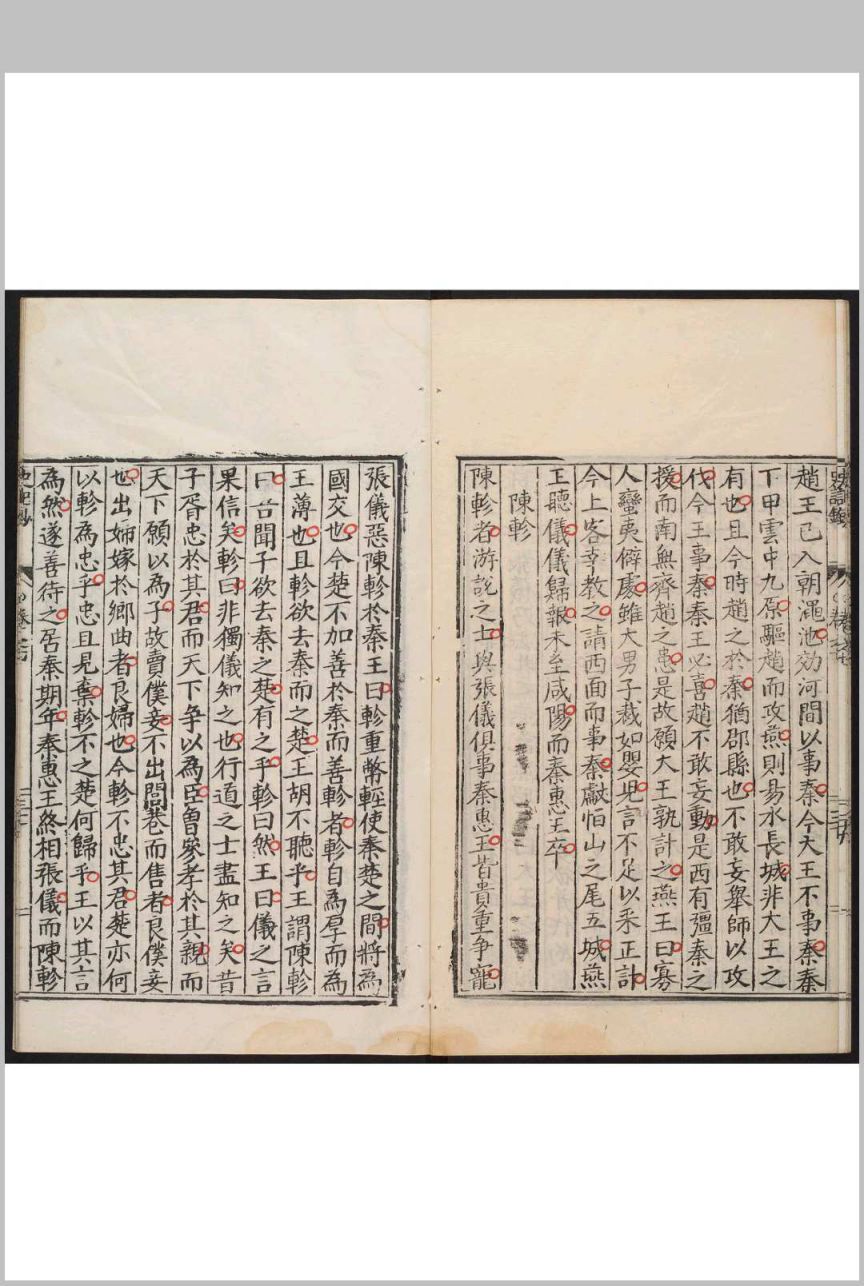 趙王已入朝澠池効河間以事秦今大王不事秦秦
下甲雲中九原驅趙而攻燕則易水長城非大王之
有也且今時趙之於秦猶郡縣也不敢妄舉師以攻
伐今王事秦秦王必喜趙不敢妄動是西有彊秦之
援而南無齊趙之患是故願大王孰計之燕王曰寡
人蠻夷僻處雖大男子裁如嬰児言不足以采正計
今上客幸教之請西面而事秦獻恒山之尾五城燕
王聽儀儀歸報未至咸陽而秦惠王卒
陳軫
陳軫者游說之士與張儀俱事秦惠王皆貴重争寵
張儀惡陳軫於秦王曰軫重幣輕使秦楚之間將為
國交也今楚不加善於秦而善軫者軫自為厚而為
王薄也且軫欲去秦而之楚王胡不聽乎王謂陳軫
曰吾聞子欲去秦之楚有之乎軫曰然王曰儀之言
果信矣軫曰非獨儀知之也行道之士盡知之矣昔
子胥忠於其君而天下争以為臣曾參孝於其親而
天下願以為子故賣僕妾不出閭巷而售者良僕妾
也出婦嫁於鄉曲者良婦也今軫不忠其君楚亦何
以軫為忠乎忠且見棄軫不之楚何歸乎王以其言
為然遂善待之居秦期年秦惠王終相張儀而陳軫